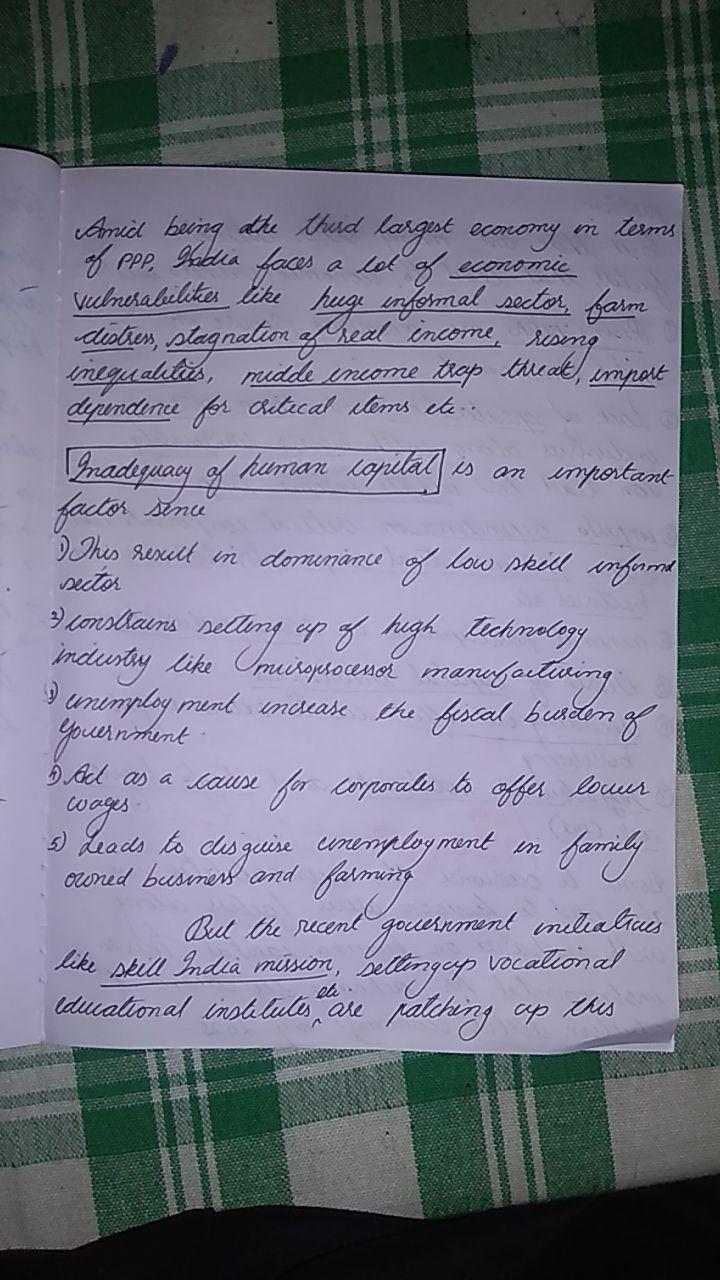 Amid being the third largest economy in terms
of PPP, India faces a lot of economic
vulnerabilities like huge informal sector, farm
distress, stagnation of real income, rising
inequalities, midde income trap threat, import
dependence for critical items etc..
Inadequacy of human capital is an important
factor since
1) This result in dominance of low skill informa
sector
2) constrains setting up of high technology
industry like microprocessor manufacturing.
3) unemployment increase the fiscal burden of
Government.
4) Act as a cause for corporates to offer lower
wages.
5) Leads to disguise unemployment in family
owned business and farming
But the recent government initiatives
like skill India mission, setting up vocational
educational institutes, etc. are patching up this